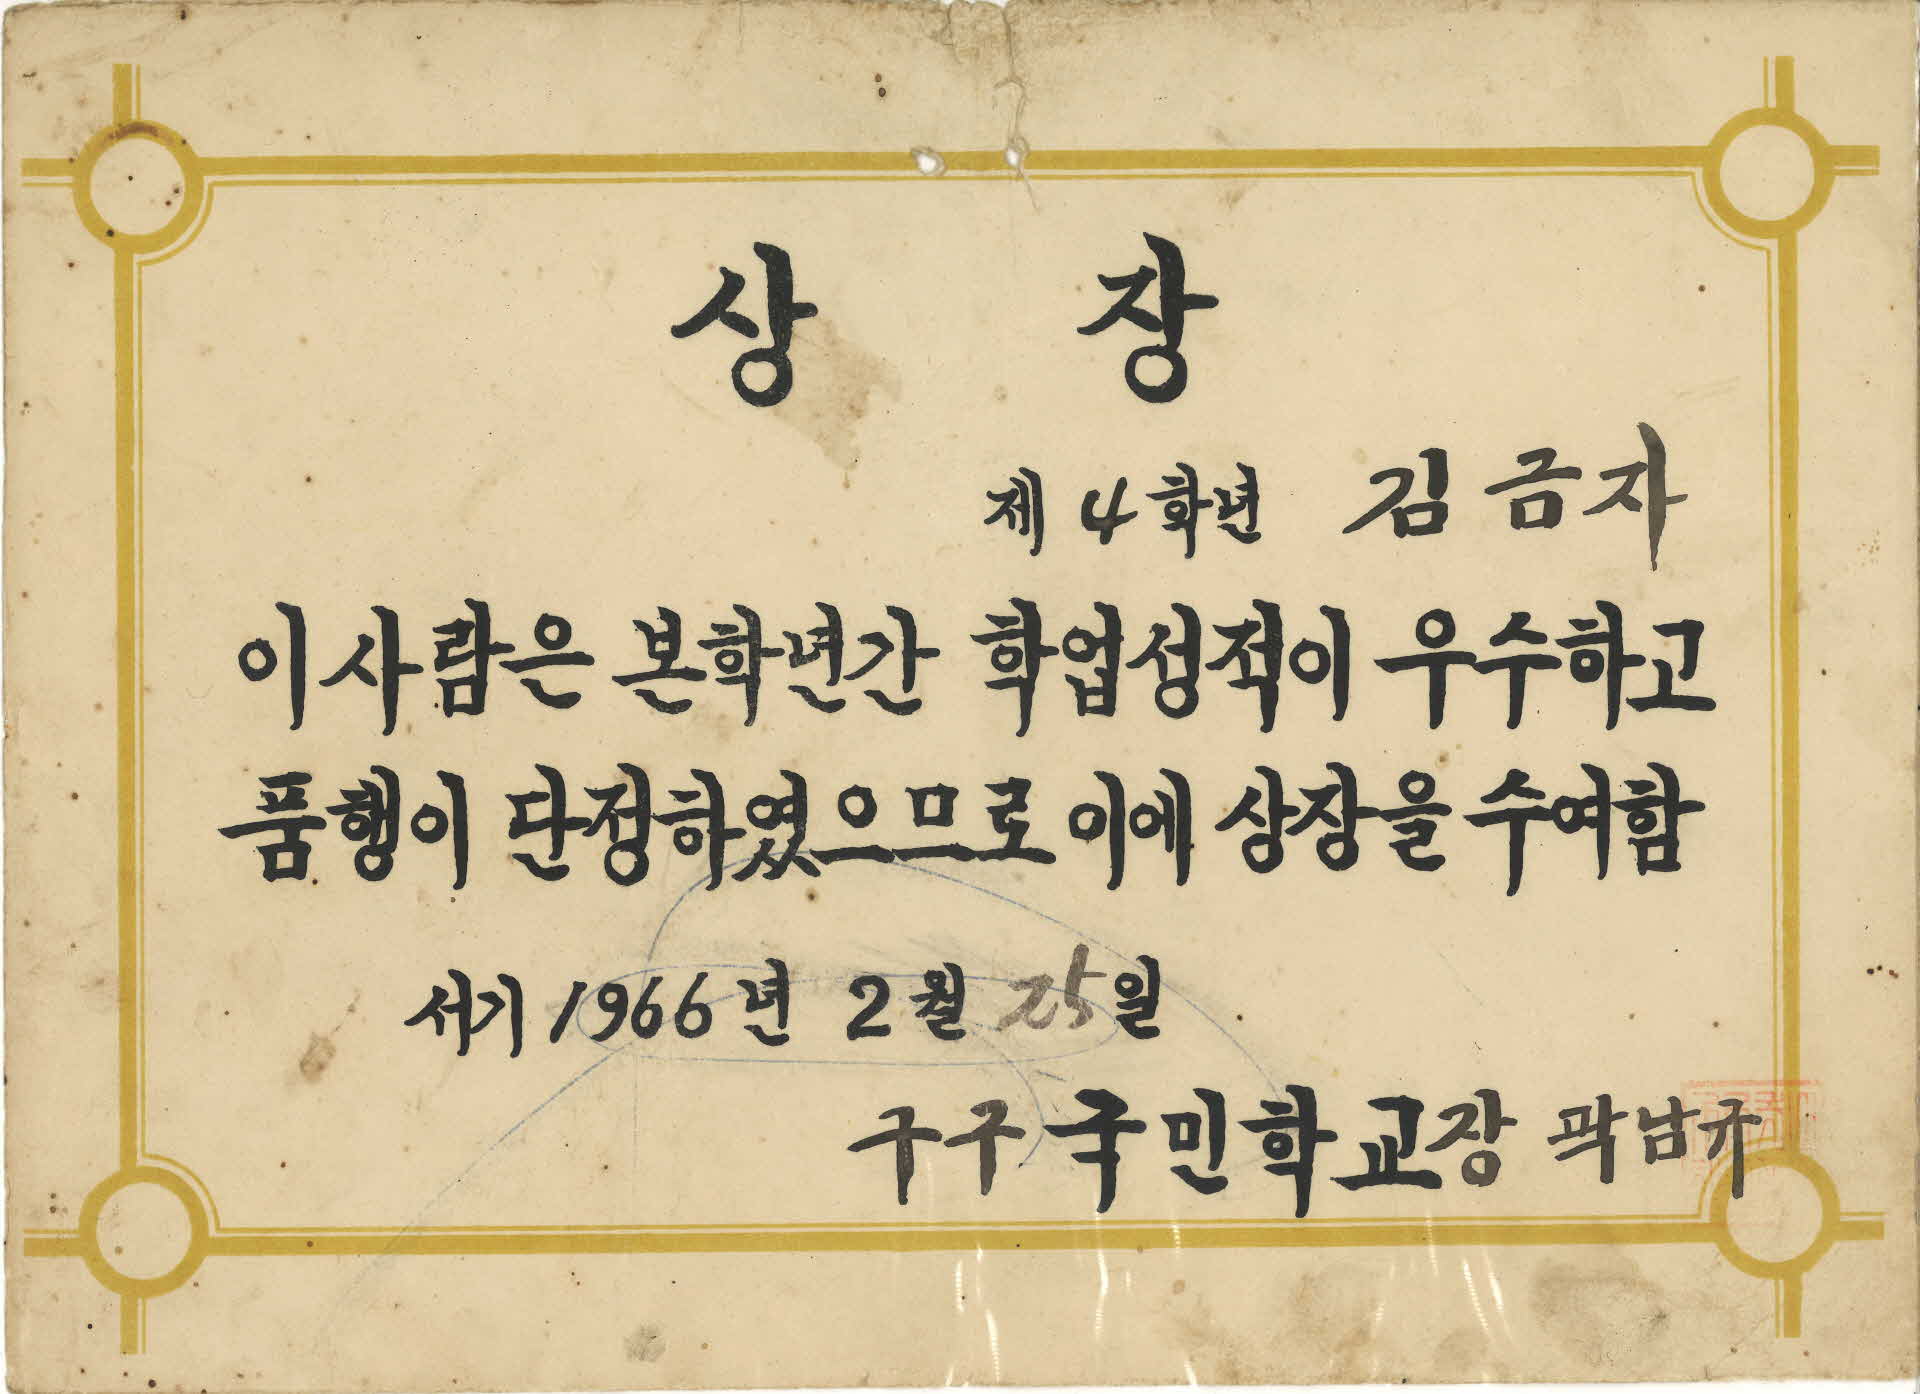 상 장
제 4 학년 김금자
이 사람은 본학년간 학업성적이 우수하고
품행이 단정하였으므로 이에 상장을 수여함
서기 1966년 2월 25일
구구국민학교장 곽남규